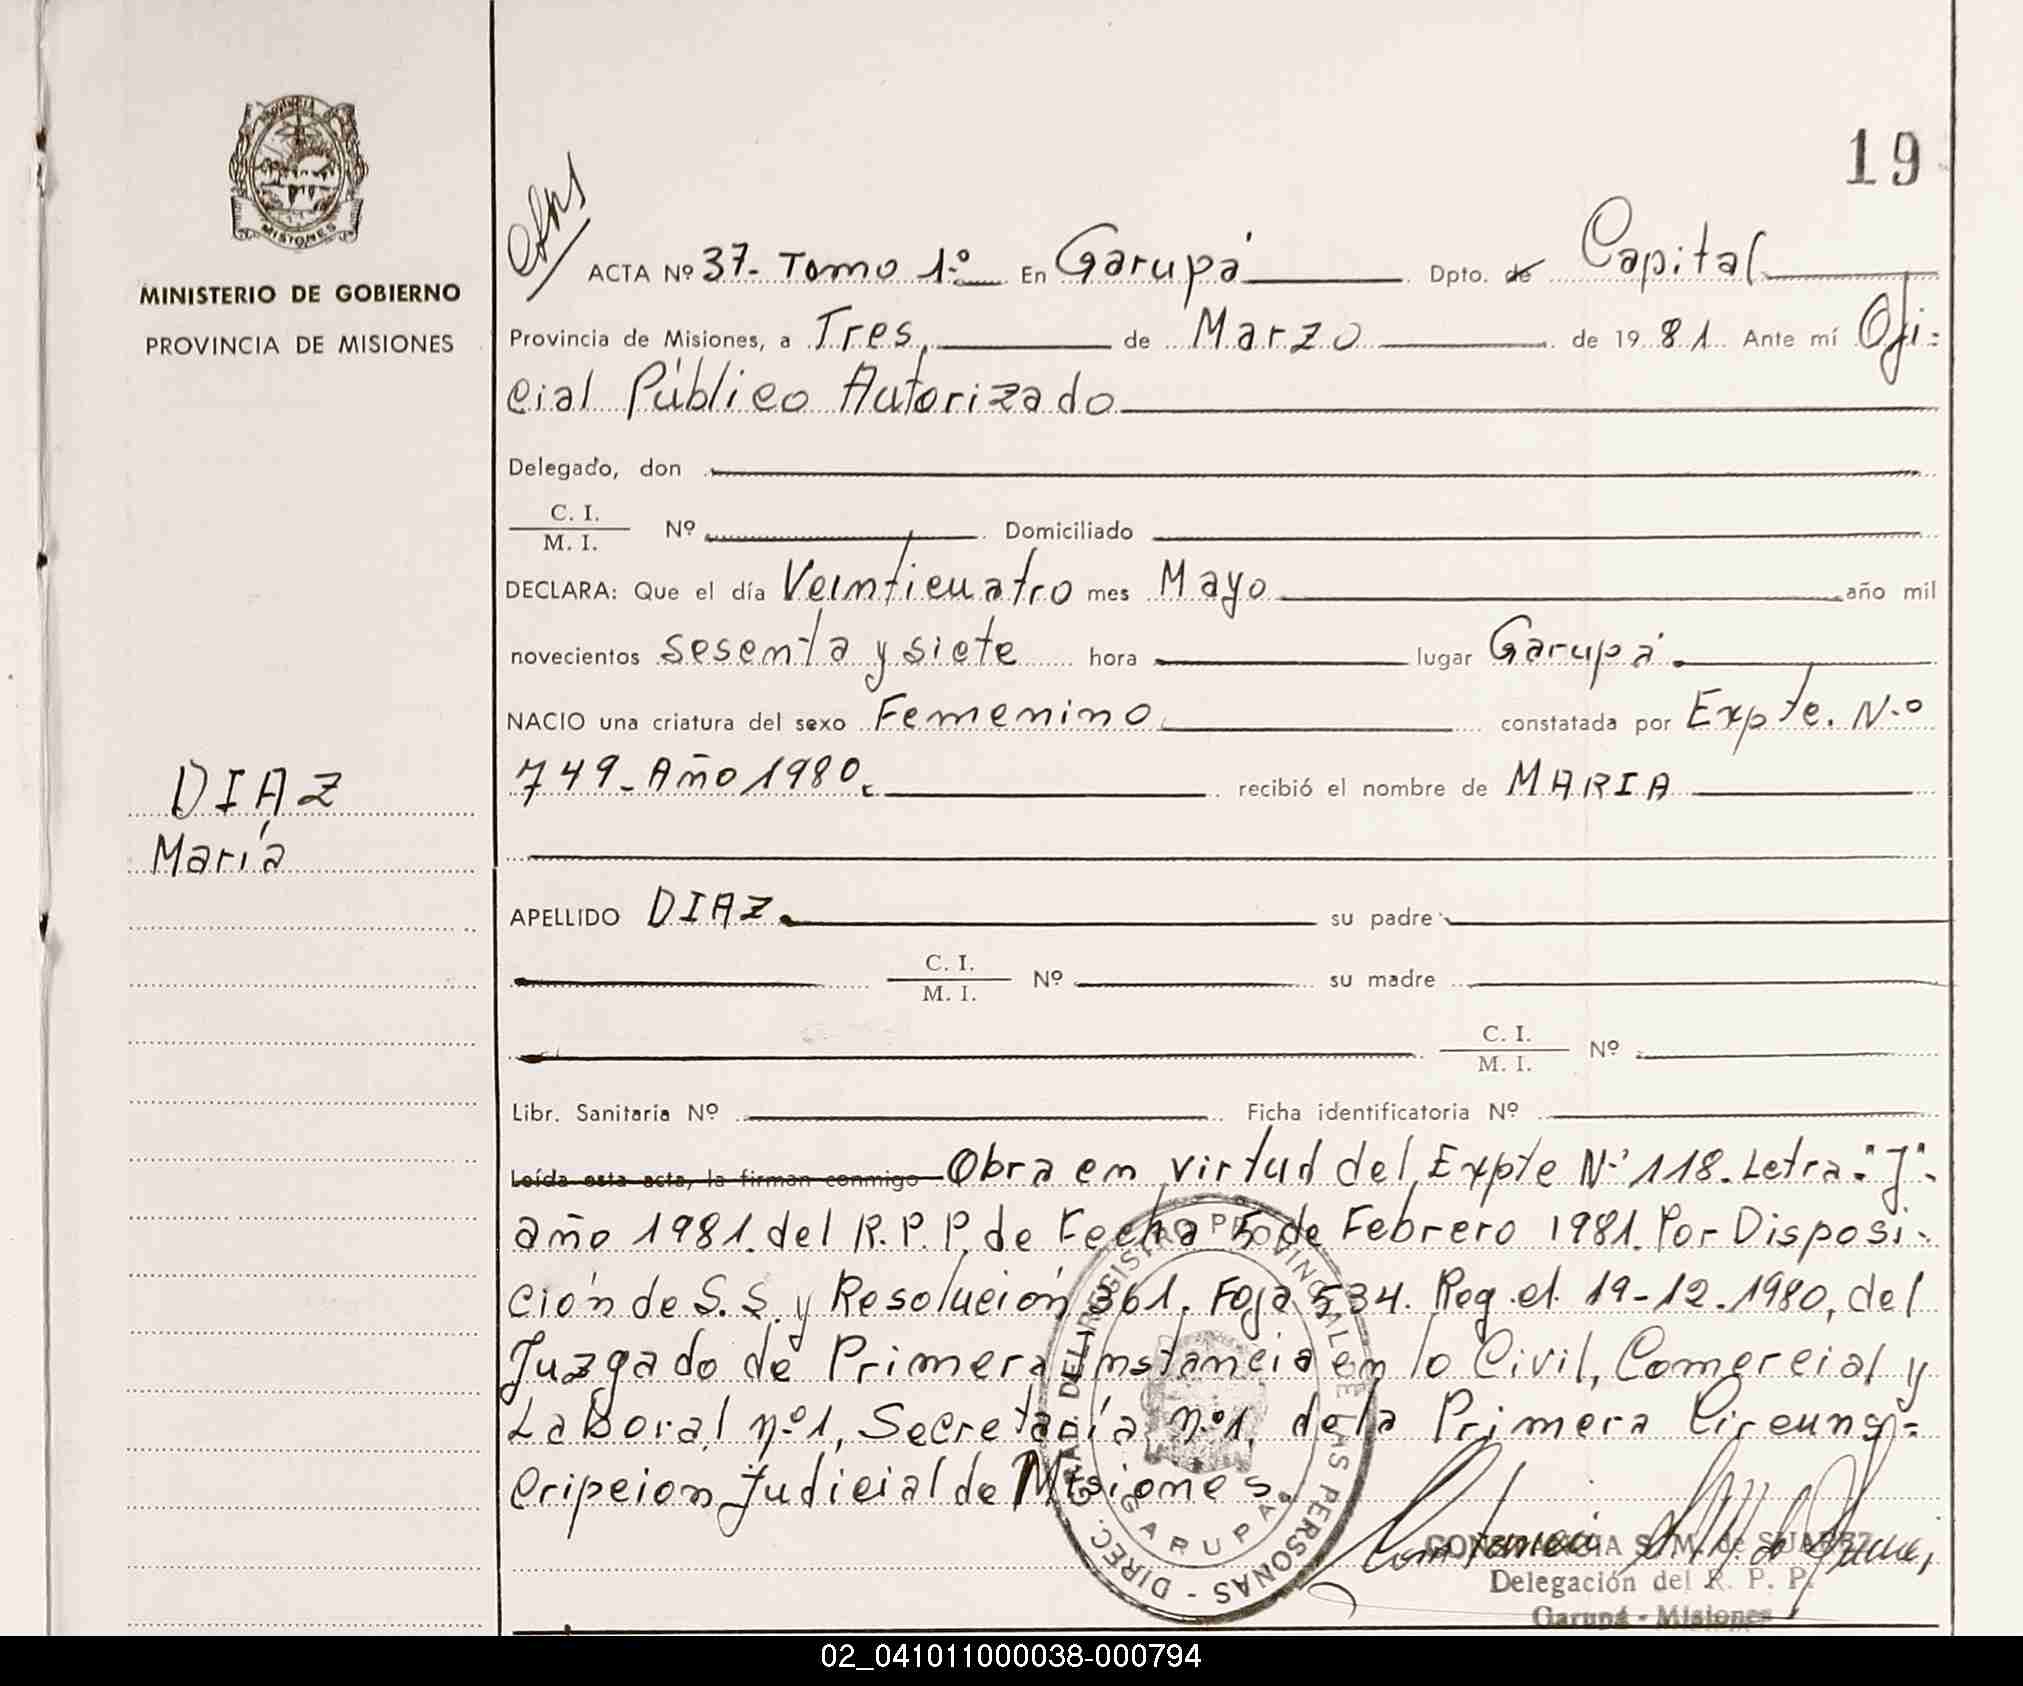 19
MISIONES
MINISTERIO DE GOBIERNO
PROVINCIA DE MISIONES
DIAZ
María
ACTA Nº 37- Tomo 1º En Garupá Dpto. de Capital
Provincia de Misiones, a Tres, de Marzo de 1981 Ante mí Ofi-
cial Público Autorizado
Delegado, don
C. I.
M. I. Nº Domiciliado
DECLARA: Que el día Veinticuatro mes Mayo año mil
novecientos sesenta y siete hora lugar Garupá.
NACIO una criatura del sexo Femenino constatada por Expte. Nº
749- Año 1980. recibió el nombre de MARIA
APELLIDO DIAZ. su padre
C. I.
M. I. Nº su madre
C. I.
M. I. Nº
Libr. Sanitaria Nº Ficha identificatoria Nº
Leída esta acta, la firman conmigo Obra en virtud del Expte Nº 118. Letra "J".
año 1981. del R.P.P. de Fecha 5 de Febrero 1981. Por Disposi-
ción de S.S. y Resolución 361. Foja 534. Reg. el 19-12-1980, del
Juzgado de Primera Instancia en lo Civil, Comercial y
Laboral nº1, Secretaría nº1, de la Primera Circuns=
cripcion Judicial de Misiones.
DIREC. GRAL. DEL REGISTRO PROVINCIAL DE LAS PERSONAS -
GARUPA
CONSTANCIA S. M. de SUAREZ
Delegación del R. P. P.
Garupá - Misiones
02_041011000038-000794